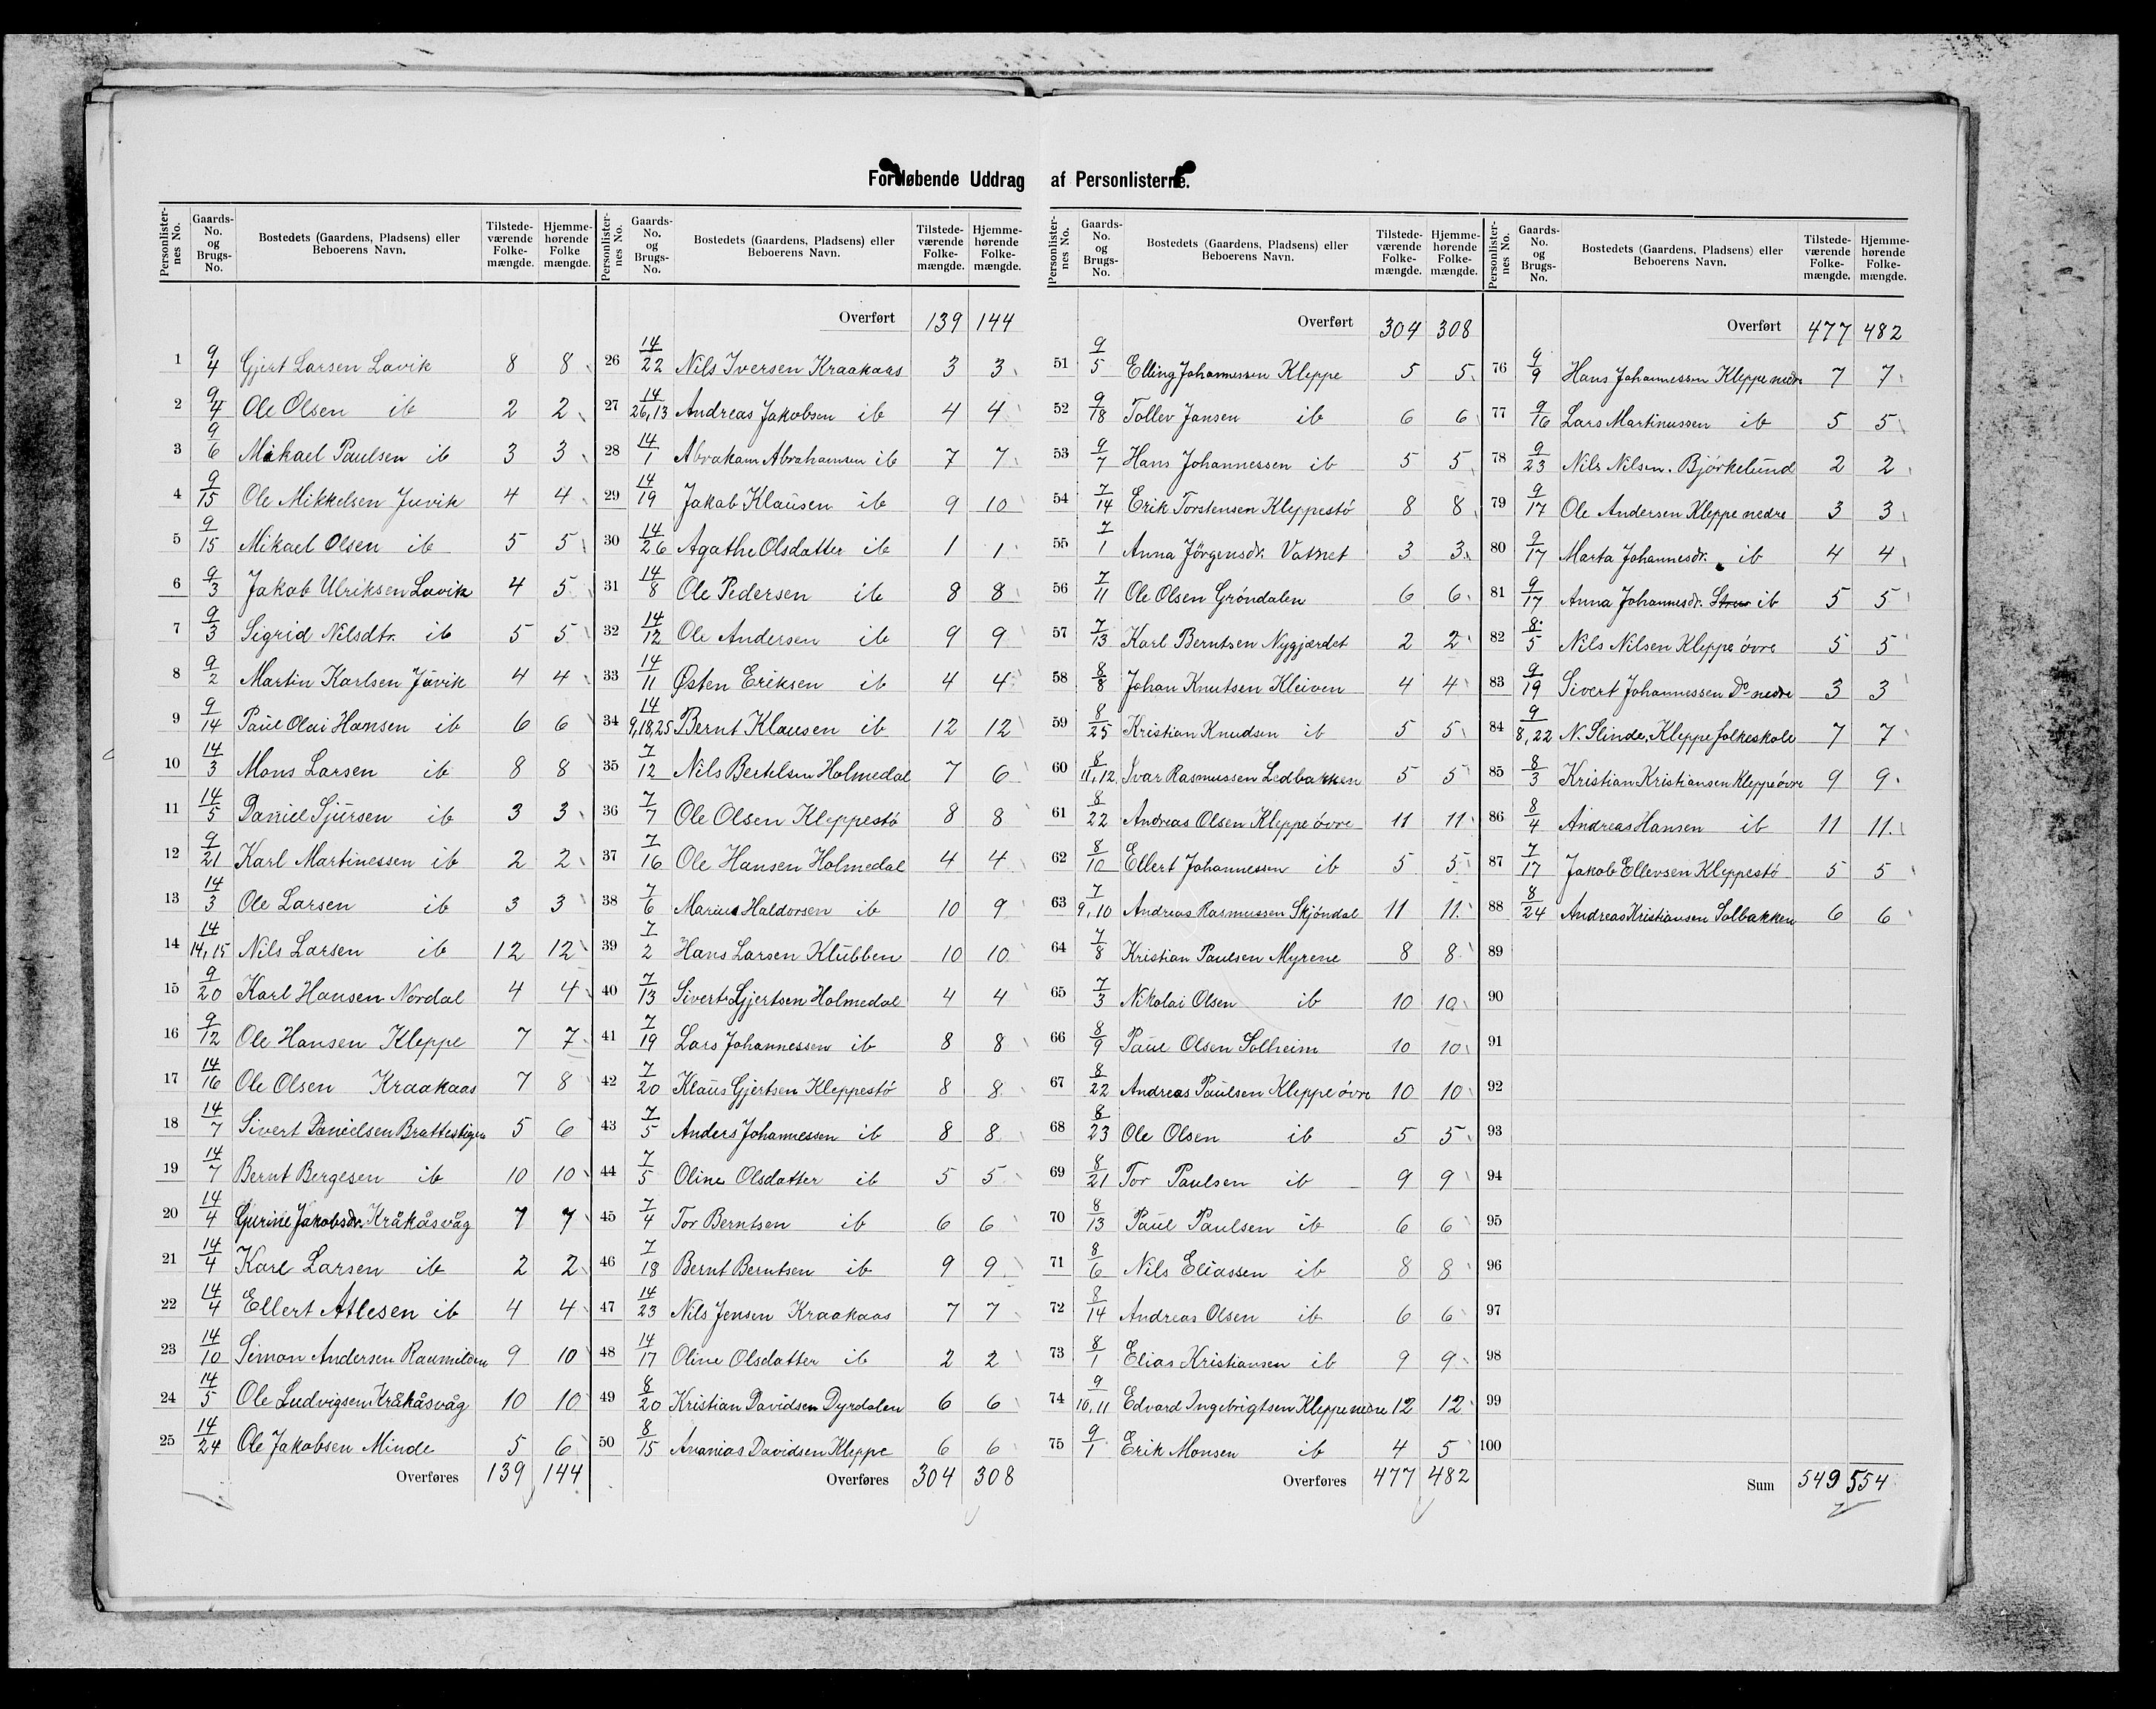 Fortløbende Uddrag af Personlisterne.
Personlister-nes No. | Gaards-No. og Brugs-No. | Bostedets (Gaardens, Pladsens) eller Beboerens Navn. | Tilstede-værende Folke-mængde. | Hjemme-hørende Folke mængde.
1 9/4 Gjert Larsen Lavik 8 8
2 9/4 Ole Olsen ib 2 2
3 9/6 Mikael Paulsen ib 3 3
4 9/15 Ole Mikkelsen Juvik 4 4
5 9/15 Mikael Olsen ib 5 5
6 9/3 Jakob Ulriksen Lavik 4 5
7 9/3 Sigrid Nilsdtr. ib 5 5
8 9/2 Martin Karlsen Juvik 4 4
9 9/14 Paul Olai Hansen ib 6 6
10 14/3 Mons Larsen ib 8 8
11 14/5 Daniel Sjursen ib 3 3
12 9/21 Karl Martinessen ib 2 2
13 14/3 Ole Larsen ib 3 3
14 14/14,15 Nils Larsen ib 12 12
15 9/20 Karl Hansen Nordal 4 4
16 9/12 Ole Hansen Kleppe 7 7
17 14/16 Ole Olsen Kraakaas 7 8
18 14/7 Sivert Danielsen Brattestigen 5 6
19 14/7 Bernt Bergesen ib 10 10
20 14/4 Gurine Jakobsdr. Kråkåsvåg 7 7
21 14/4 Karl Larsen ib 2 2
22 14/4 Ellert Atlesen ib 4 4
23 14/10 Simon Andersen Raunilden 9 10
24 14/5 Ole Ludvigsen Kråkåsvåg 10 10
25 14/24 Ole Jakobsen Minde 5 6
Overføres 139 144
Personlister-nes No. | Gaards-No. og Brugs-No. | Bostedets (Gaardens, Pladsens) eller Beboerens Navn. | Tilstede-værende Folke-mængde. | Hjemme-hørende Folke-mængde.
Overført 139 144
26 14/22 Nils Iversen Kraakaas 3 3
27 14/26,13 Andreas Jakobsen ib 4 4
28 14/1 Abraham Abrahamsen ib 7 7
29 14/19 Jakob Klausen ib 9 10
30 14/26 Agathe Olsdatter ib 1 1
31 14/8 Ole Pedersen ib 8 8
32 14/12 Ole Andersen ib 9 9
33 14/11 Østen Eriksen ib 4 4
34 14/9,18,25 Bernt Klausen ib 12 12
35 7/12 Nils Bertelsen Holmedal 7 6
36 7/7 Ole Olsen Kleppestø 8 8
37 7/16 Ole Hansen Holmedal 4 4
38 7/6 Marius Haldorsen ib 10 9
39 7/2 Hans Larsen Klubben 10 10
40 7/13 Sivert Gjertsen Holmedal 4 4
41 7/19 Lars Johannessen ib 8 8
42 7/20 Klaus Gjertsen Kleppestø 8 8
43 7/5 Anders Johannessen ib 8 8
44 7/5 Oline Olsdatter ib 5 5
45 7/4 Tor Berntsen ib 6 6
46 7/18 Bernt Berntsen ib 9 9
47 14/23 Nils Jensen Kraakaas 7 7
48 14/17 Oline Olsdatter ib 2 2
49 8/20 Kristian Davidsen Dyrdalen 6 6
50 8/15 Ananias Davidsen Kleppe 6 6
Overføres 304 308
Personlister-nes No. | Gaards-No. og Brugs-No. | Bostedets (Gaardens, Pladsens) eller Beboerens Navn. | Tilstede-værende Folke-mængde. | Hjemme-hørende Folke-mængde.
Overført 304 308
51 9/5 Elling Johannessen Kleppe 5 5
52 9/18 Tollev Jansen ib 6 6
53 9/7 Hans Johannessen ib 5 5
54 7/14 Erik Torstensen Kleppestø 8 8
55 7/1 Anna Jörgensdr. Vatnet 3 3
56 7/11 Ole Olsen Gröndalen 6 6
57 7/13 Karl Berntsen Nygjærdet 2 2
58 8/8 Johan Knutsen Kleiven 4 4
59 8/25 Kristian Knudsen ib 5 5
60 8/11,12 Ivar Rasmussen Ledbakken 5 5
61 8/22 Andreas Olsen Kleppe övre 11 11
62 8/10 Ellert Johannessen ib 5 5
63 7/9,10 Andreas Rasmussen Skjöndal 11 11
64 7/8 Kristian Paulsen Myrene 8 8
65 7/3 Nikolai Olsen ib 10 10
66 8/9 Paul Olsen Solheim 10 10
67 8/22 Andreas Paulsen Kleppe övre 10 10
68 8/23 Ole Olsen ib 5 5
69 8/21 Tor Paulsen ib 9 9
70 8/13 Paul Paulsen ib 6 6
71 8/6 Nils Eliassen ib 8 8
72 8/14 Andreas Olsen ib 6 6
73 8/1 Elias Kristiansen ib 9 9
74 9/10,11 Edvard Ingebrigtsen Kleppe nedre 12 12
75 9/1 Erik Monsen ib 4 5
Overføres 477 482
Personlister-nes No. | Gaards-No. og Brugs-No. | Bostedets (Gaardens, Pladsens) eller Beboerens Navn. | Tilstede-værende Folke-mængde. | Hjemme-hørende Folke-mængde.
Overført 477 482
76 9/9 Hans Johannessen Kleppe nedre 7 7
77 9/16 Lars Martinussen ib 5 5
78 9/23 Nils Nilsen. Bjørkelund 2 2
79 9/17 Ole Andersen Kleppe nedre 3 3
80 9/17 Marta Johannesdr. ib 4 4
81 9/17 Anna Johannesdr. ib 5 5
82 8/5 Nils Nilsen Kleppe övre 5 5
83 9/19 Sivert Johannessen Do nedre 3 3
84 9/8,22 N. Slinde, Kleppe folkeskole 7 7
85 8/3 Kristian Kristiansen Kleppe övre 9 9
86 8/4 Andreas Hansen ib 11 11
87 7/17 Jakob Ellevsen Kleppestö 5 5
88 8/24 Andreas Kristiansen Solbakken 6 6
89
90
91
92
93
94
95
96
97
98
99
100
Sum 549 554